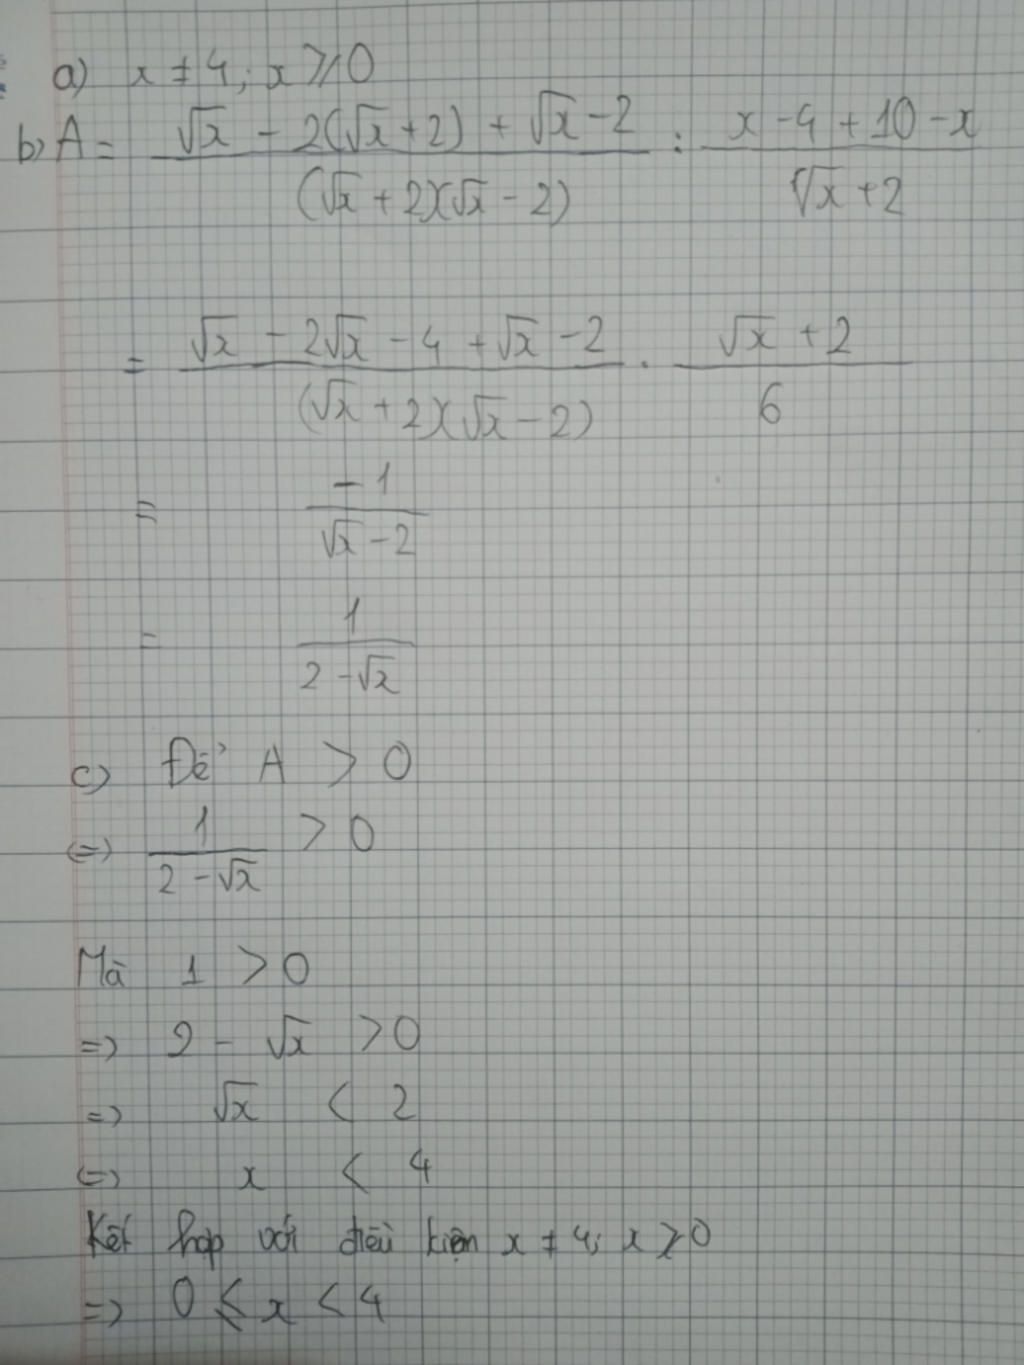 a) x ≠ 4; x ≥ 0
b) A = (√x - 2(√x + 2) + √x - 2) / ((√x + 2)(√x - 2)) : (x - 4 + 10 - x) / (√x + 2)
= (√x - 2√x - 4 + √x - 2) / ((√x + 2)(√x - 2)) . (√x + 2) / 6
= -1 / (√x - 2)
= 1 / (2 - √x)
c) Để A > 0
<=> 1 / (2 - √x) > 0
Mà 1 > 0
=> 2 - √x > 0
=> √x < 2
<=> x < 4
Kết hợp với điều kiện x ≠ 4; x ≥ 0
=> 0 ≤ x < 4